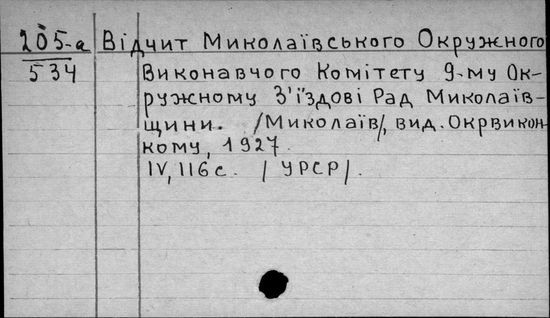 205-а Відчит Миколаївського Окружного
534 Виконавчого Комітету 9-му Ок-
ружному З'їздові Рад Миколаїв-
щини. /Миколаїв/, вид. Окрвикон-
кому, 1927.
IV, 116 с. /УРСР/.